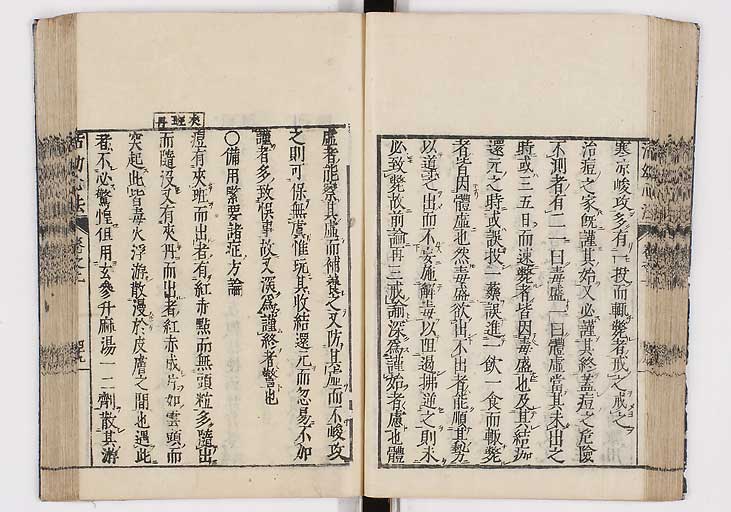 寒凉峻攻多有一投而輒斃者戒之戒之
治痘之家既謹其始又必謹其終蓋痘之危險
不測者有二一曰毒盛一曰體虛當其未出之
時或三五日而速斃者皆因毒盛也及其結痂
還元之時或誤投一藥誤進一飲一食而輒斃
者皆因體虛也然毒盛欲出不出者能順其勢
以道之出而不妄施解毒以阻遏拂逆之則未
必致斃故前論再三戒諭深為謹始者慮也體
虛者能察其虛而補養之又防其虛而不峻攻
之則可保無虞惟玩其收結還元而忽易不加
謹者多致悞事故又深為謹終者警也
〇備用緊要諸症方論
夾班丹
痘有夾班而出者有紅赤點而無頭粒多隨出
而隨没又有夾丹而出者紅赤成片如雲頭而
突起此皆毒火浮游散漫於皮膚之間也遇此
者不必驚惶但用玄參升麻湯一二劑散其游
活幼心法